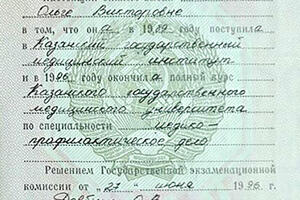 Ольге Викторовне
в том, что она в 1989 году поступила
в Казанский государственный
медицинский институт
и в 1996 году окончила полный курс
Казанского государственного
медицинского университета
по специальности медико-
профилактическое дело
Решением Государственной экзаменационной
комиссии от "27" июня 1996 г.